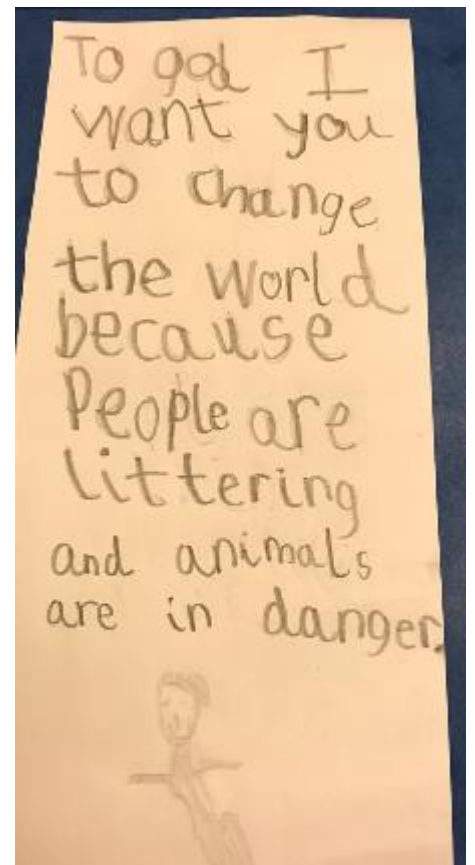 To god I
want you
to change
the world
because
People are
littering
and animals
are in danger.